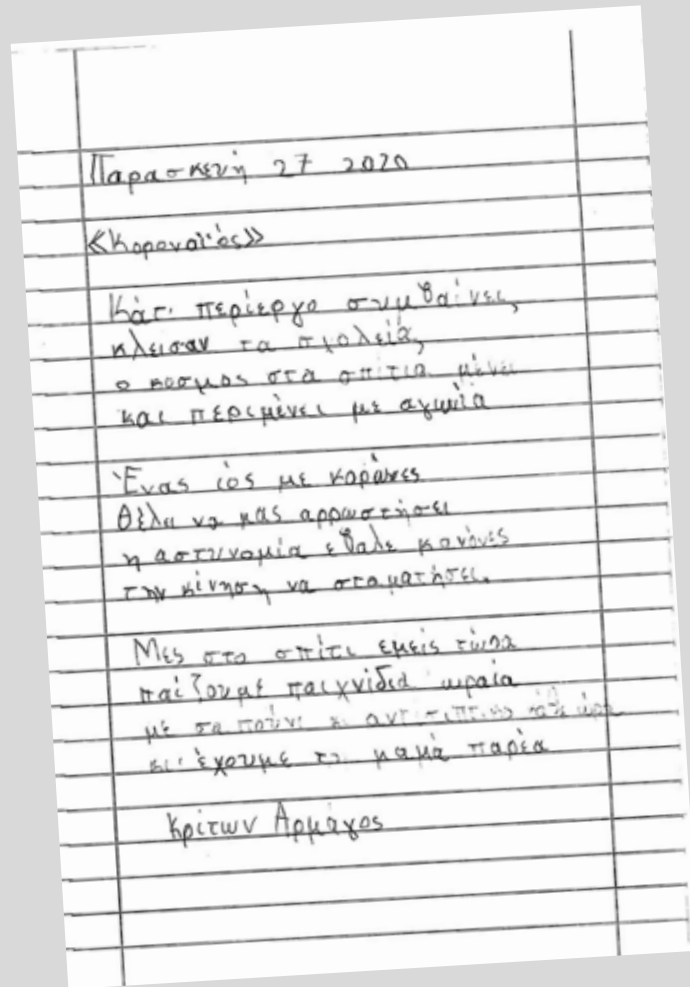 Παρασκευή 27 2020
«Κοροναϊός»
Κάτι περίεργο συμβαίνει,
κλεισαν τα σχολειά,
ο κοσμος στα σπίτια μένει
και περιμένει με αγωνία
Ένας ιός με κορώνες
θέλει να μας αρρωστήσει
η αστυνομία εβαλε κανόνες
την κίνηση να σταματήσει.
Μες στο σπίτι εμείς τώρα
παίζουμε παιχνίδια ωραία
με σαπούνι κι αντισηπτικό κάθε ώρα
κι έχουμε τη μαμά παρέα
Κρίτων Αρμάγος